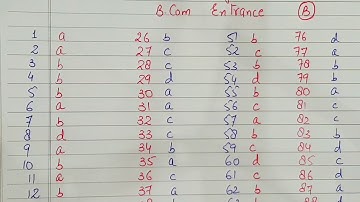 B.Com Entrance B
1 a 26 b 51 b 76 d
2 a 27 c 52 c 77 a
3 b 28 c 53 b 78 b
4 b 29 d 54 d 79 b
5 b 30 a 55 b 80 a
6 a 31 a 56 c 81 c
7 b 32 c 57 a 82 c
8 d 33 c 58 b 83 b
9 a 34 b 59 c 84 d
10 b 35 a 60 d 85 c
11 a 36 c 61 c 86 d
12 b 37 a 62 b 87 a